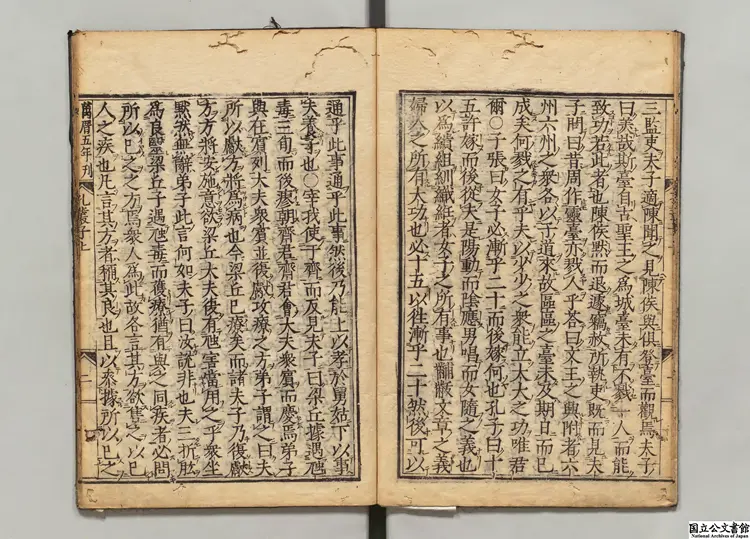 三監吏夫子適陳聞之見陳侯與俱登臺而觀焉夫子
曰美哉斯臺自古聖王之為城臺未有不戮一人而能
致功若此者也陳侯默而退遽竊赦所執吏既而見夫
子問曰昔周作靈臺亦戮人乎答曰文王之興附者六
州六州之衆各以子道來故區區之臺未及期日而已
成矣何戮之有乎夫以少少之衆能立大大之功唯君
爾○子張曰女子必漸乎二十而後嫁何也孔子曰十
五許嫁而後從夫是陽動而陰應男唱而女隨之義也
以為績組紃織紝者女子之所有事也黼黻文章之義
婦人之所有大功也必十五以往漸乎二十然後可以
通乎此事通乎此事然後乃能上以孝於舅姑下以事
夫養子也○宰我使于齊而反見夫子曰梁丘據遇虺
毒三旬而後瘳朝齊君齊君會大夫衆賓而慶焉弟子
與在賓列大夫衆賓並復獻攻療之方弟子謂之曰夫
所以獻方將為病也今梁丘已療矣而諸夫子乃復獻
方方將安施意欲梁丘大夫復有虺害當用之乎衆坐
默然無辭弟子此言何如夫子曰汝說非也夫三折肱
為良醫梁丘子遇虺毒而獲療猶有與之同疾者必問
所以已之之方焉衆人為此故各言其方欲售之以已
人之疾也凡言其方者稱其良也且以參據所以已之
萬曆五年刊 孔叢子上 二
国立公文書館
National Archives of Japan